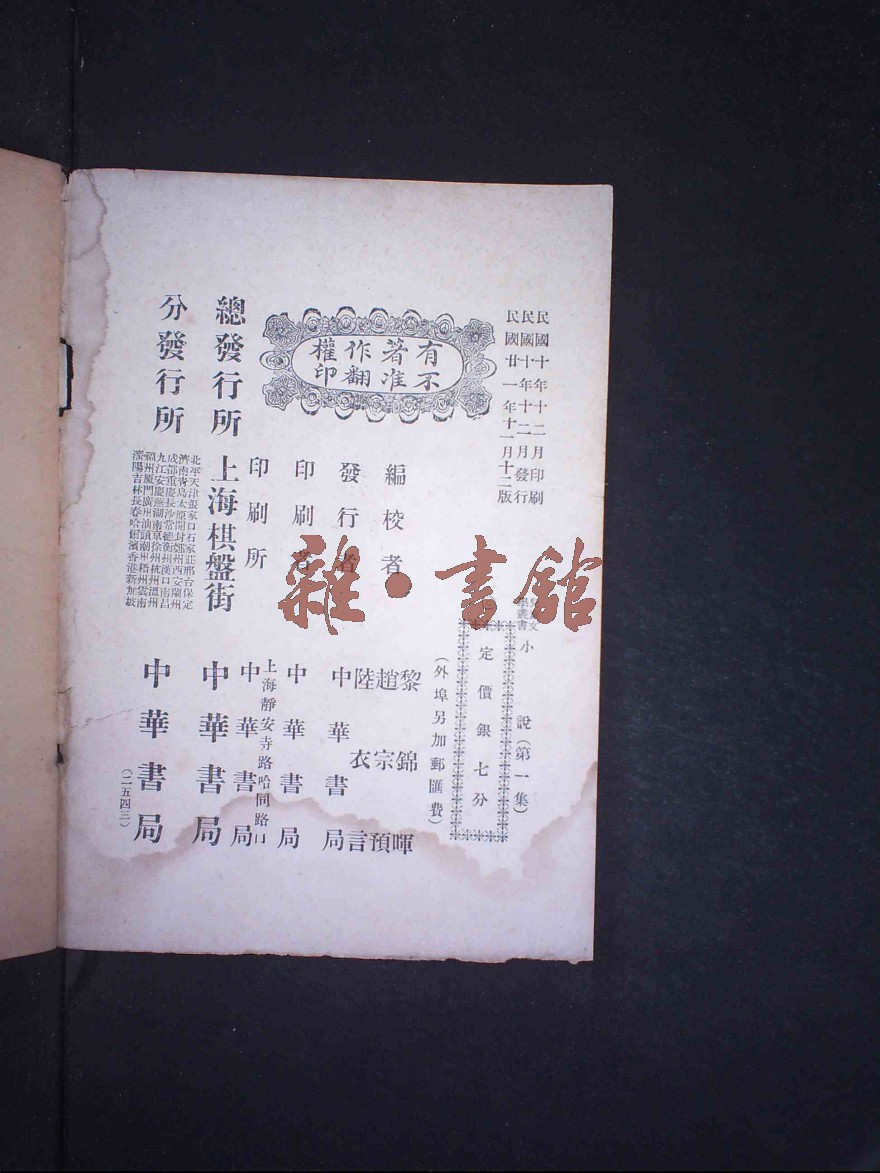 民國十年十二月印刷
民國十年十二月發行
民國廿一年十一月十二版
小說（第一集）
定價銀七分
（外埠另加郵匯費）
有著作權
不准翻印
編校者 黎錦暉
趙宗預
陸衣言
發行者 中華書局
印刷者 中華書局
印刷所 上海靜安寺路哈同路口
中華書局
總發行所 上海棋盤街 中華書局
分發行所
北平天津張家口石家莊邢台保定
濟南青島太原開封鄭州西安蘭州
成都重慶長沙常德衡州漢口南昌
九江安慶蕪湖南京徐州杭州溫州
福州厦門廣州汕頭潮州梧州雲南
瀋陽吉林長春哈爾濱香港新加坡
中華書局
（二五四三）
雜·書館